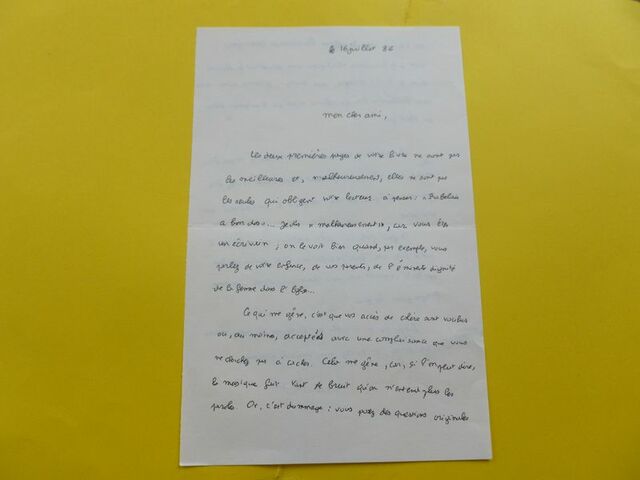 le 16 juillet 86
mon cher ami,
Les deux premières pages de votre livre ne sont pas
les meilleures et, malheureusement, elles ne sont pas
les seules qui obligent votre lecteur à penser : « Rabelais
a bon dos »... Je dis « malheureusement », car vous êtes
un écrivain ; on le voit bien quand, par exemple, vous
parlez de votre enfance, de vos parents, de l'éminente dignité
de la femme dans l'Eglise...
Ce qui me gêne, c'est que vos accès de colère sont voulus
ou, au moins, acceptés avec une complaisance que vous
ne cherchez pas à cacher. Cela me gêne, car, si l'on peut dire,
la musique fait tant de bruit qu'on n'entend plus les
paroles. Or, c'est dommage : vous posez des questions originales